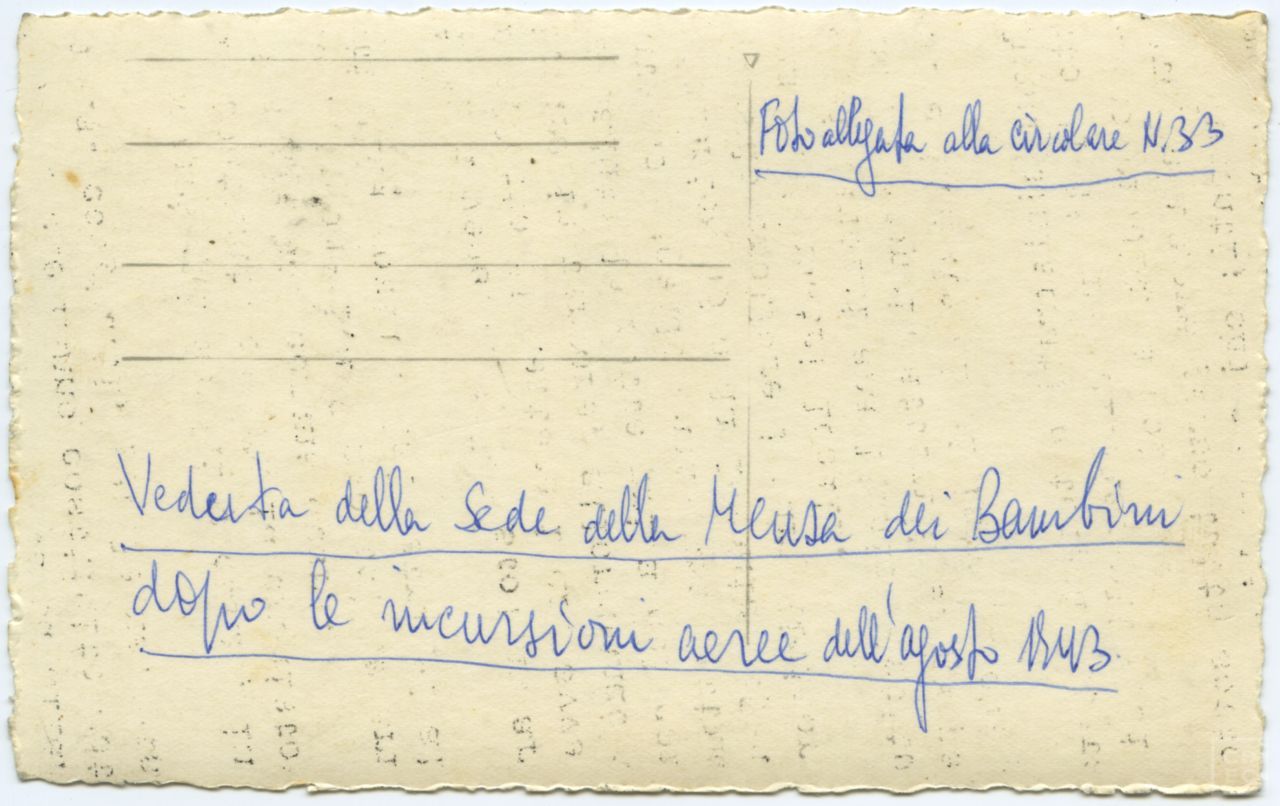 Foto allegata alla circolare N. 33
Veduta della Sede della Mensa dei Bambini
dopo le incursioni aeree dell'agosto 1943.